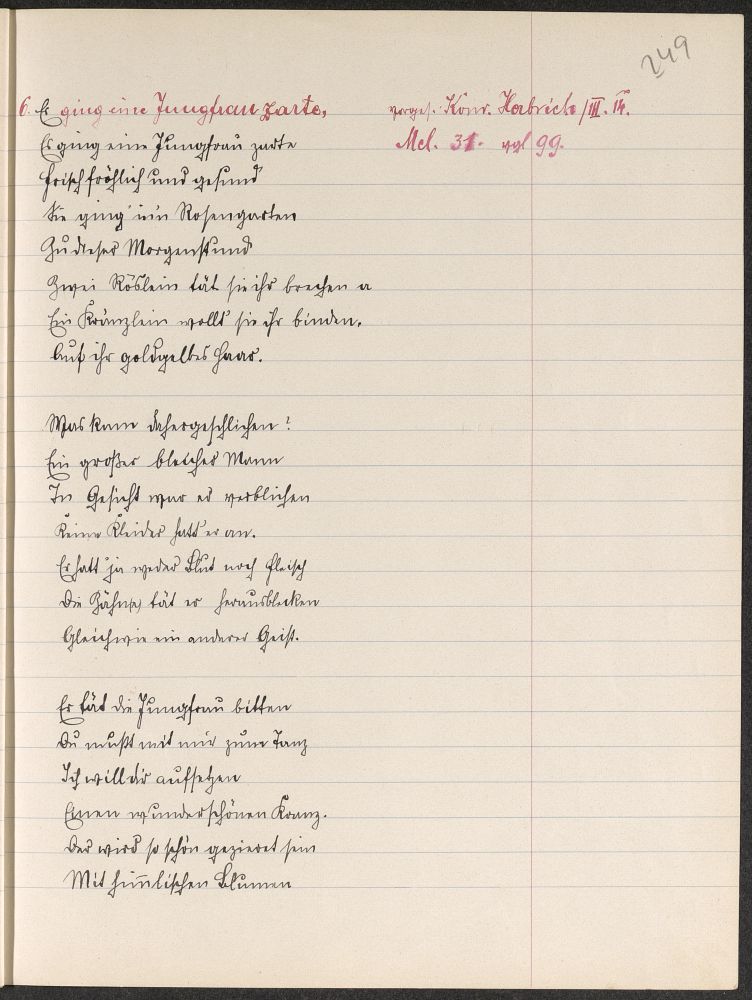 249
6. Es ging eine Jungfrau zarte, vorges. Konr. Herbrich /III. 14.
Mel. 31. vgl 99.
Es ging eine Jungfrau zarte
Frisch fröhlich und gesund
Sie ging in'n Rosengarten
Zu dieser Morgenstund
Zwei Röslein tät sie ihr brechen a
Ein Kränzlein wollt sie ihr binden.
Auf ihr goldgelbes Haar.
Was kam dahergeschlichen?
Ein großer bleicher Mann
In Gesicht war er verblichen
Keine Kleider hatt' er an.
Er hatt' ja weder Blut noch Fleisch
Die Zähn(e) tät er herausblecken
Gleichwie ein anderer Geist.
Er tät die Jungfrau bitten
Du mußt mit mir zum Tanz
Ich will dir aufsetzen
Einen wunderschönen Kranz.
Der wird so schön gezieret sein
Mit him̅lischen Blumen